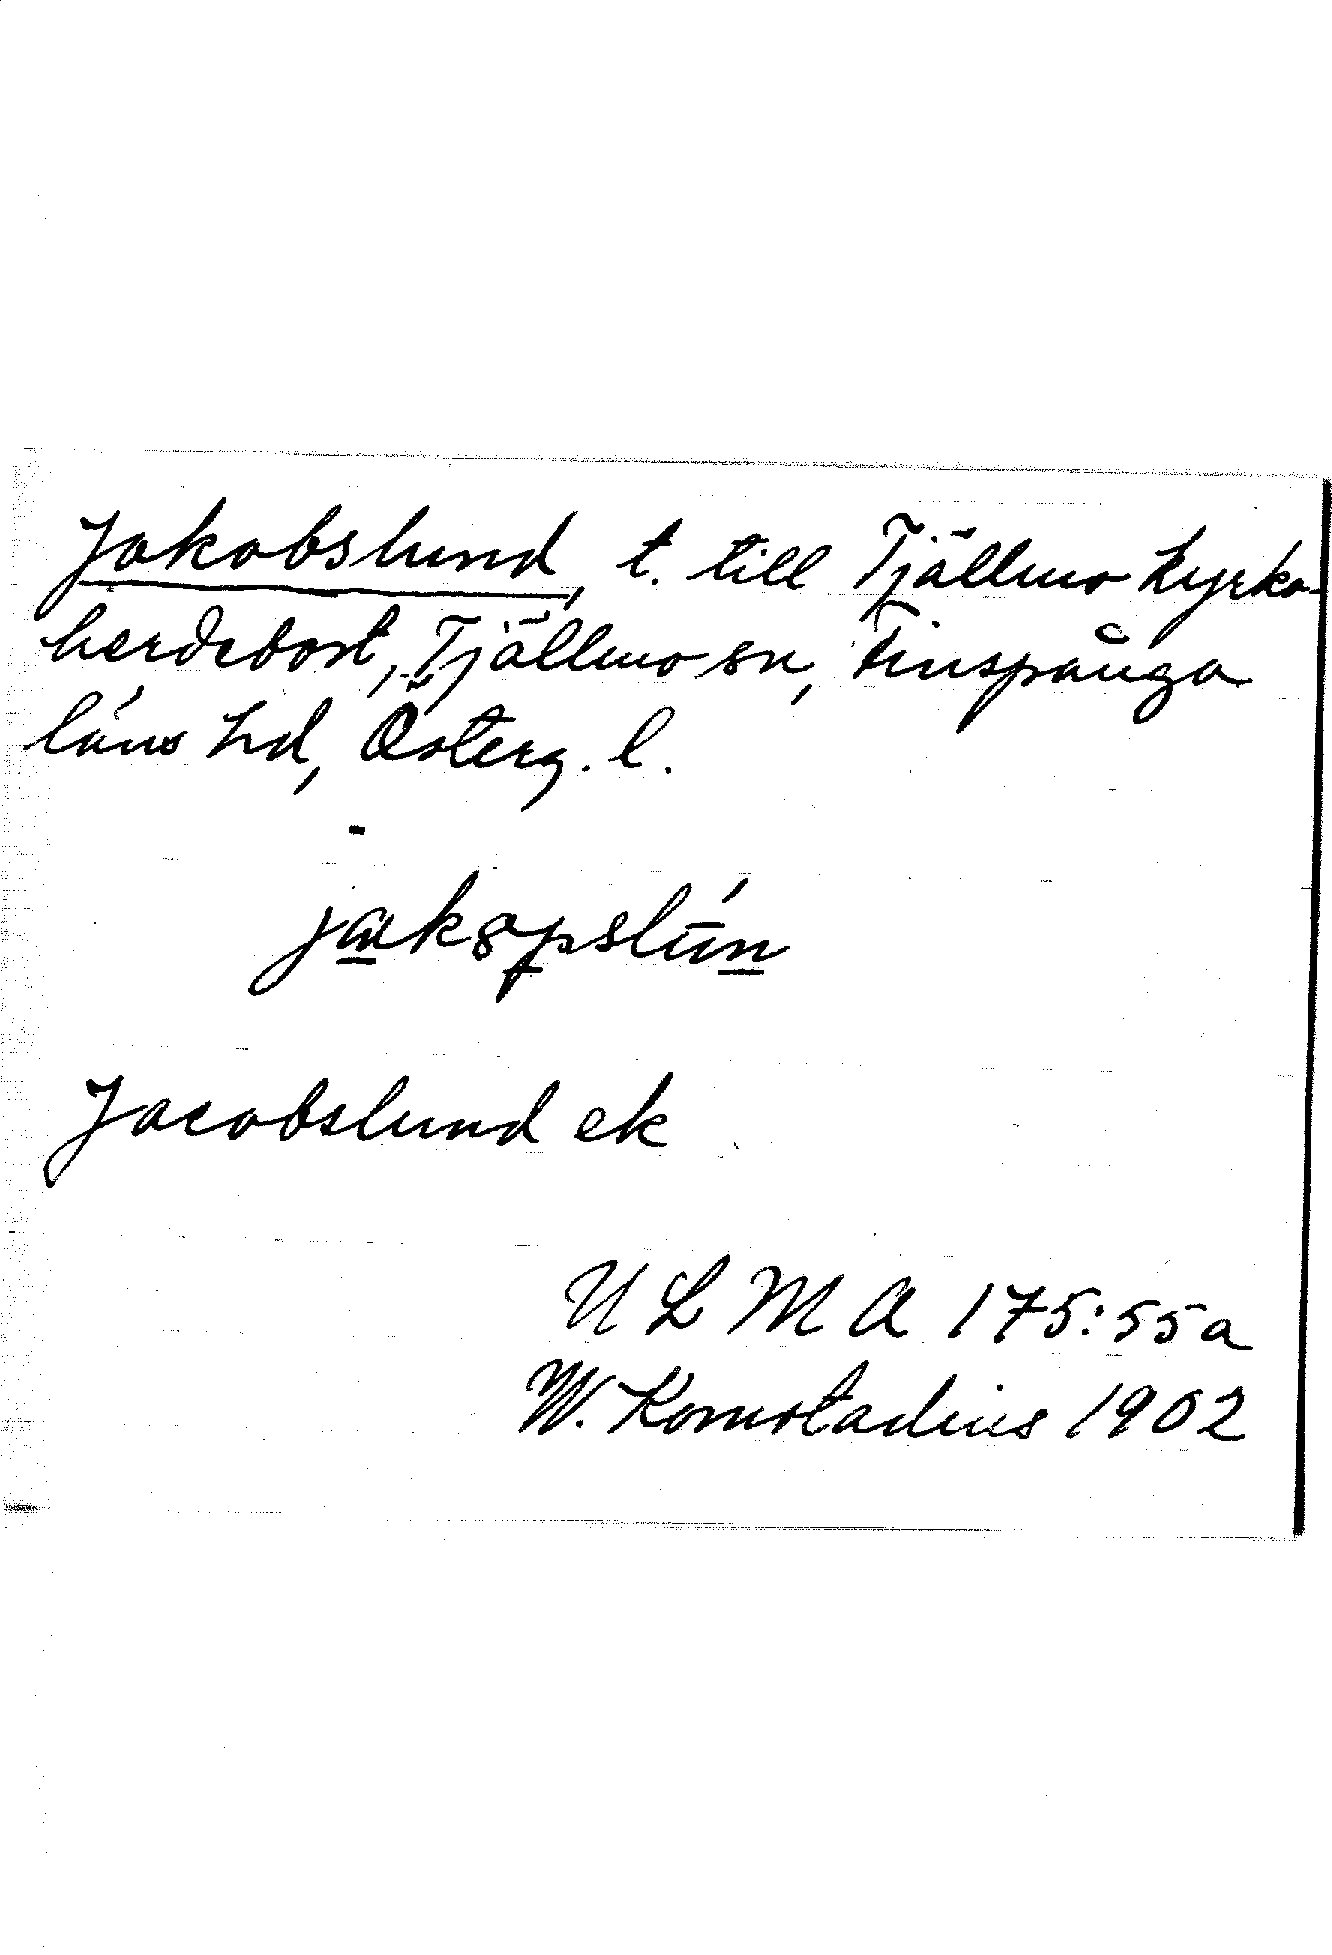 Jakobslund, t. till Tjällmo kyrko-
herdebost, Tjällmo sn, Finspånga
läns hd, Österg. l.
jakopslún
Jacobslund ek
ULMA 175:55a
W. Komstadius 1902